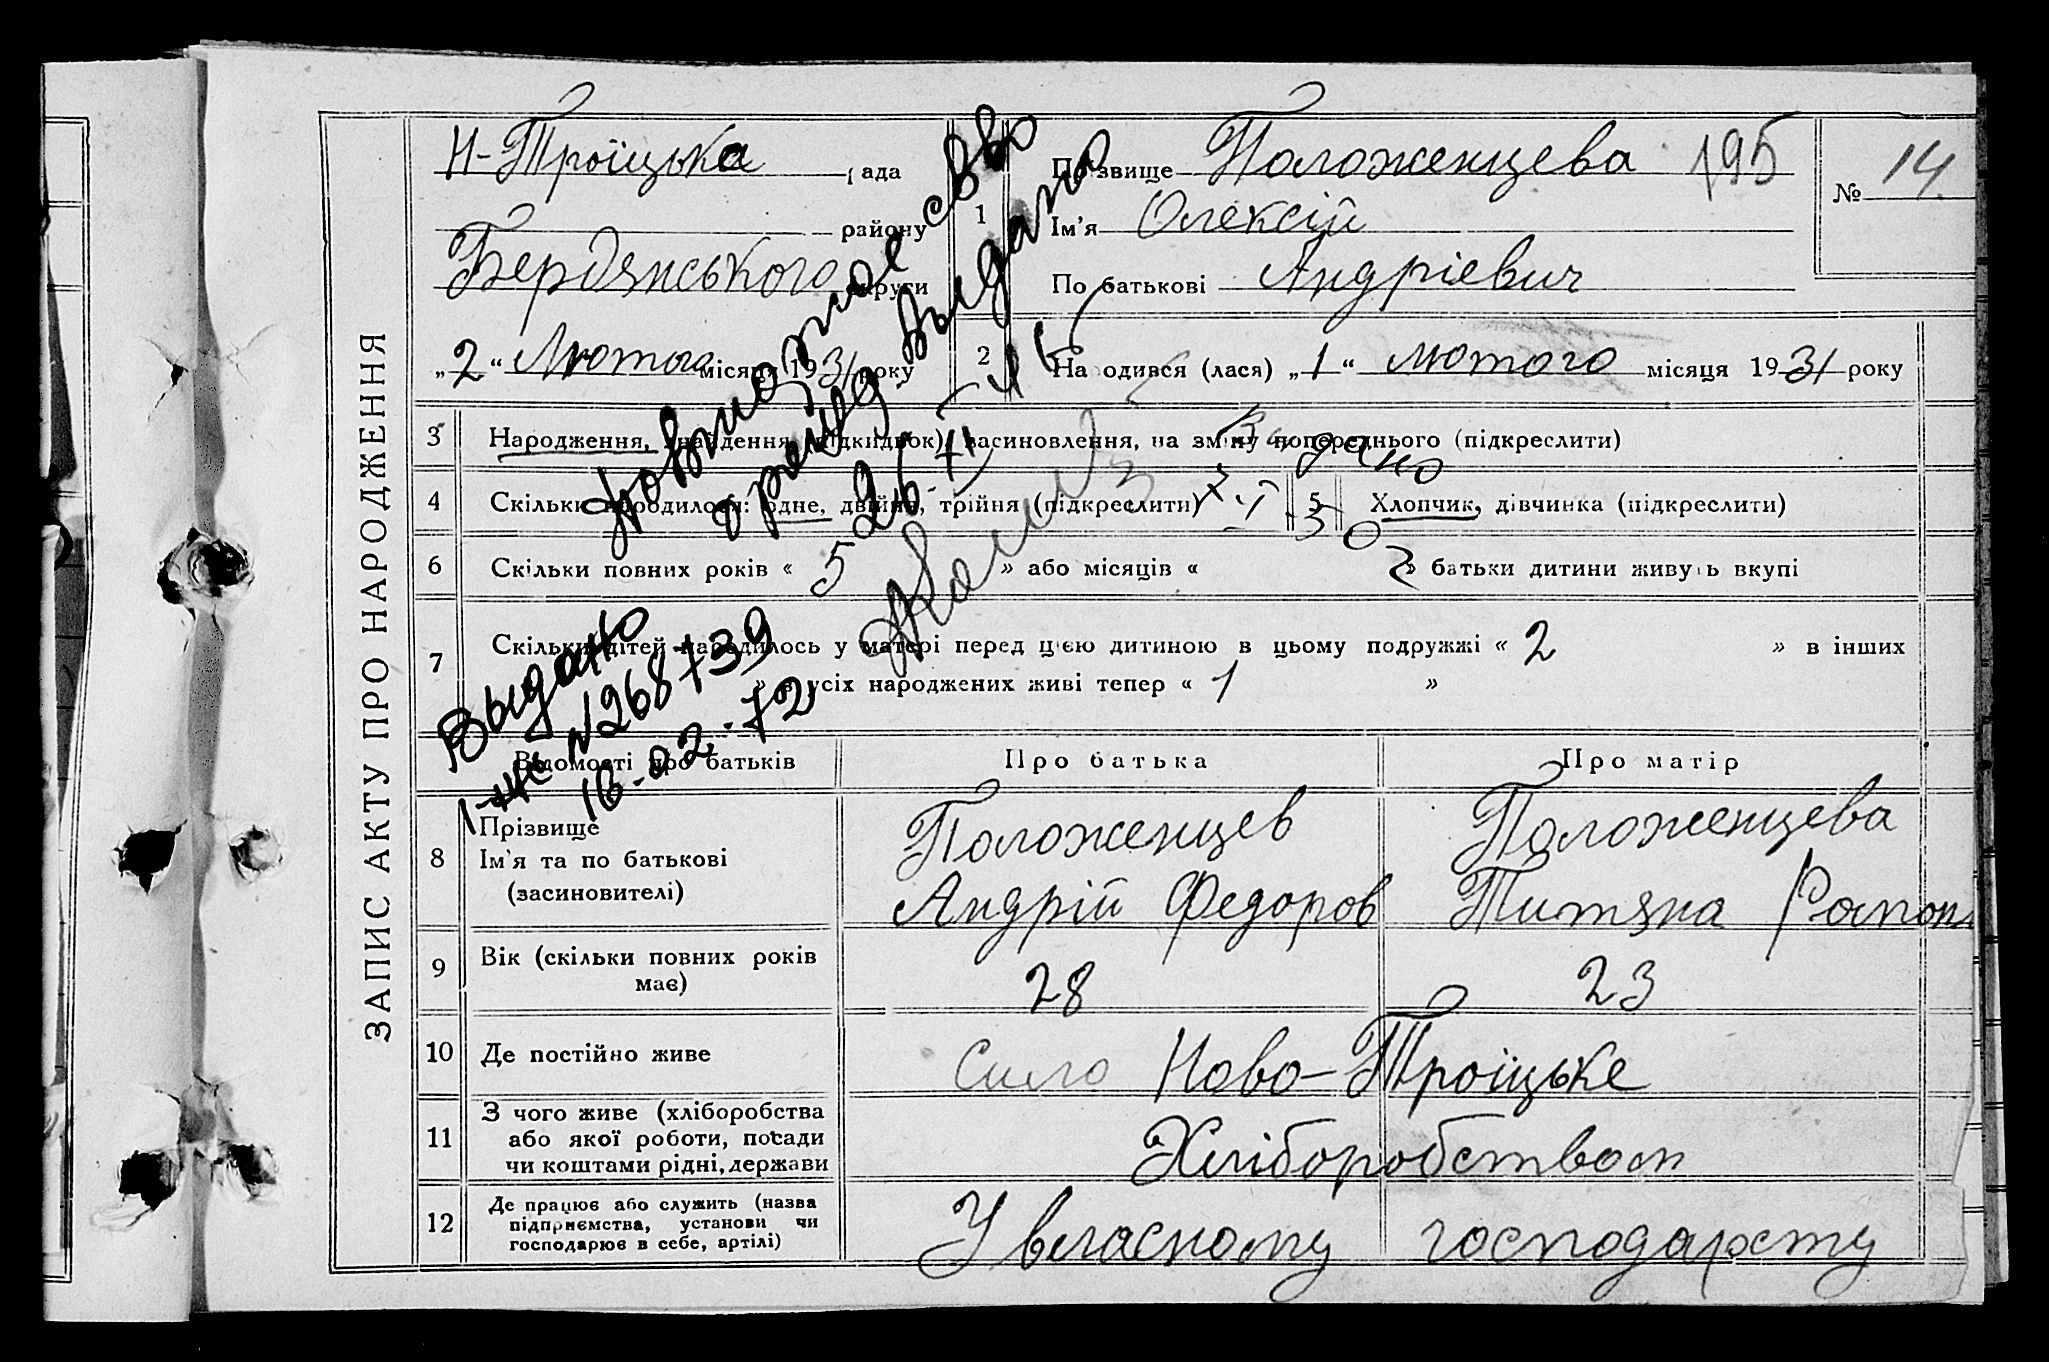 ЗАПИС АКТУ ПРО НАРОДЖЕННЯ
Н-Троїцька рада
району
Бердянського округи
„2“ Лютого місяця 1931 року
1
Прізвище Положенцева 195
Ім'я Олексій
По батькові Андрієвич
№ 14
2
Народився (лася) „1“ лютого місяця 1931 року
3 Народження, знайдення (підкидьок), засиновлення, на зміну попереднього (підкреслити)
4 Скільки народилося: одне, двійня, трійня (підкреслити)
5 Хлопчик, дівчинка (підкреслити)
6 Скільки повних років « 5 » або місяців « » батьки дитини живуть вкупі
7 Скільки дітей народилось у матері перед цією дитиною в цьому подружжі « 2 » в інших
» в усіх народжених живі тепер « 1 »
Повторное св-во
о рожд. выдано
26
Выдано
Видано
№268739
16-02-72
Відомості про батьків
Про батька
Про матір
8 Прізвище
Ім'я та по батькові
(засиновителі)
Положенцев
Андрій Федоров
Положенцева
Титяна
9 Вік (скільки повних років
має)
28
23
10 Де постійно живе
Сило Ново-Троїцьке
11 З чого живе (хліборобства
або якої роботи, посади
чи коштами рідні, держави
Хліборобством
12 Де працює або служить (назва
підприємства, установи чи
господарює в себе, артілі)
У власному господарсту